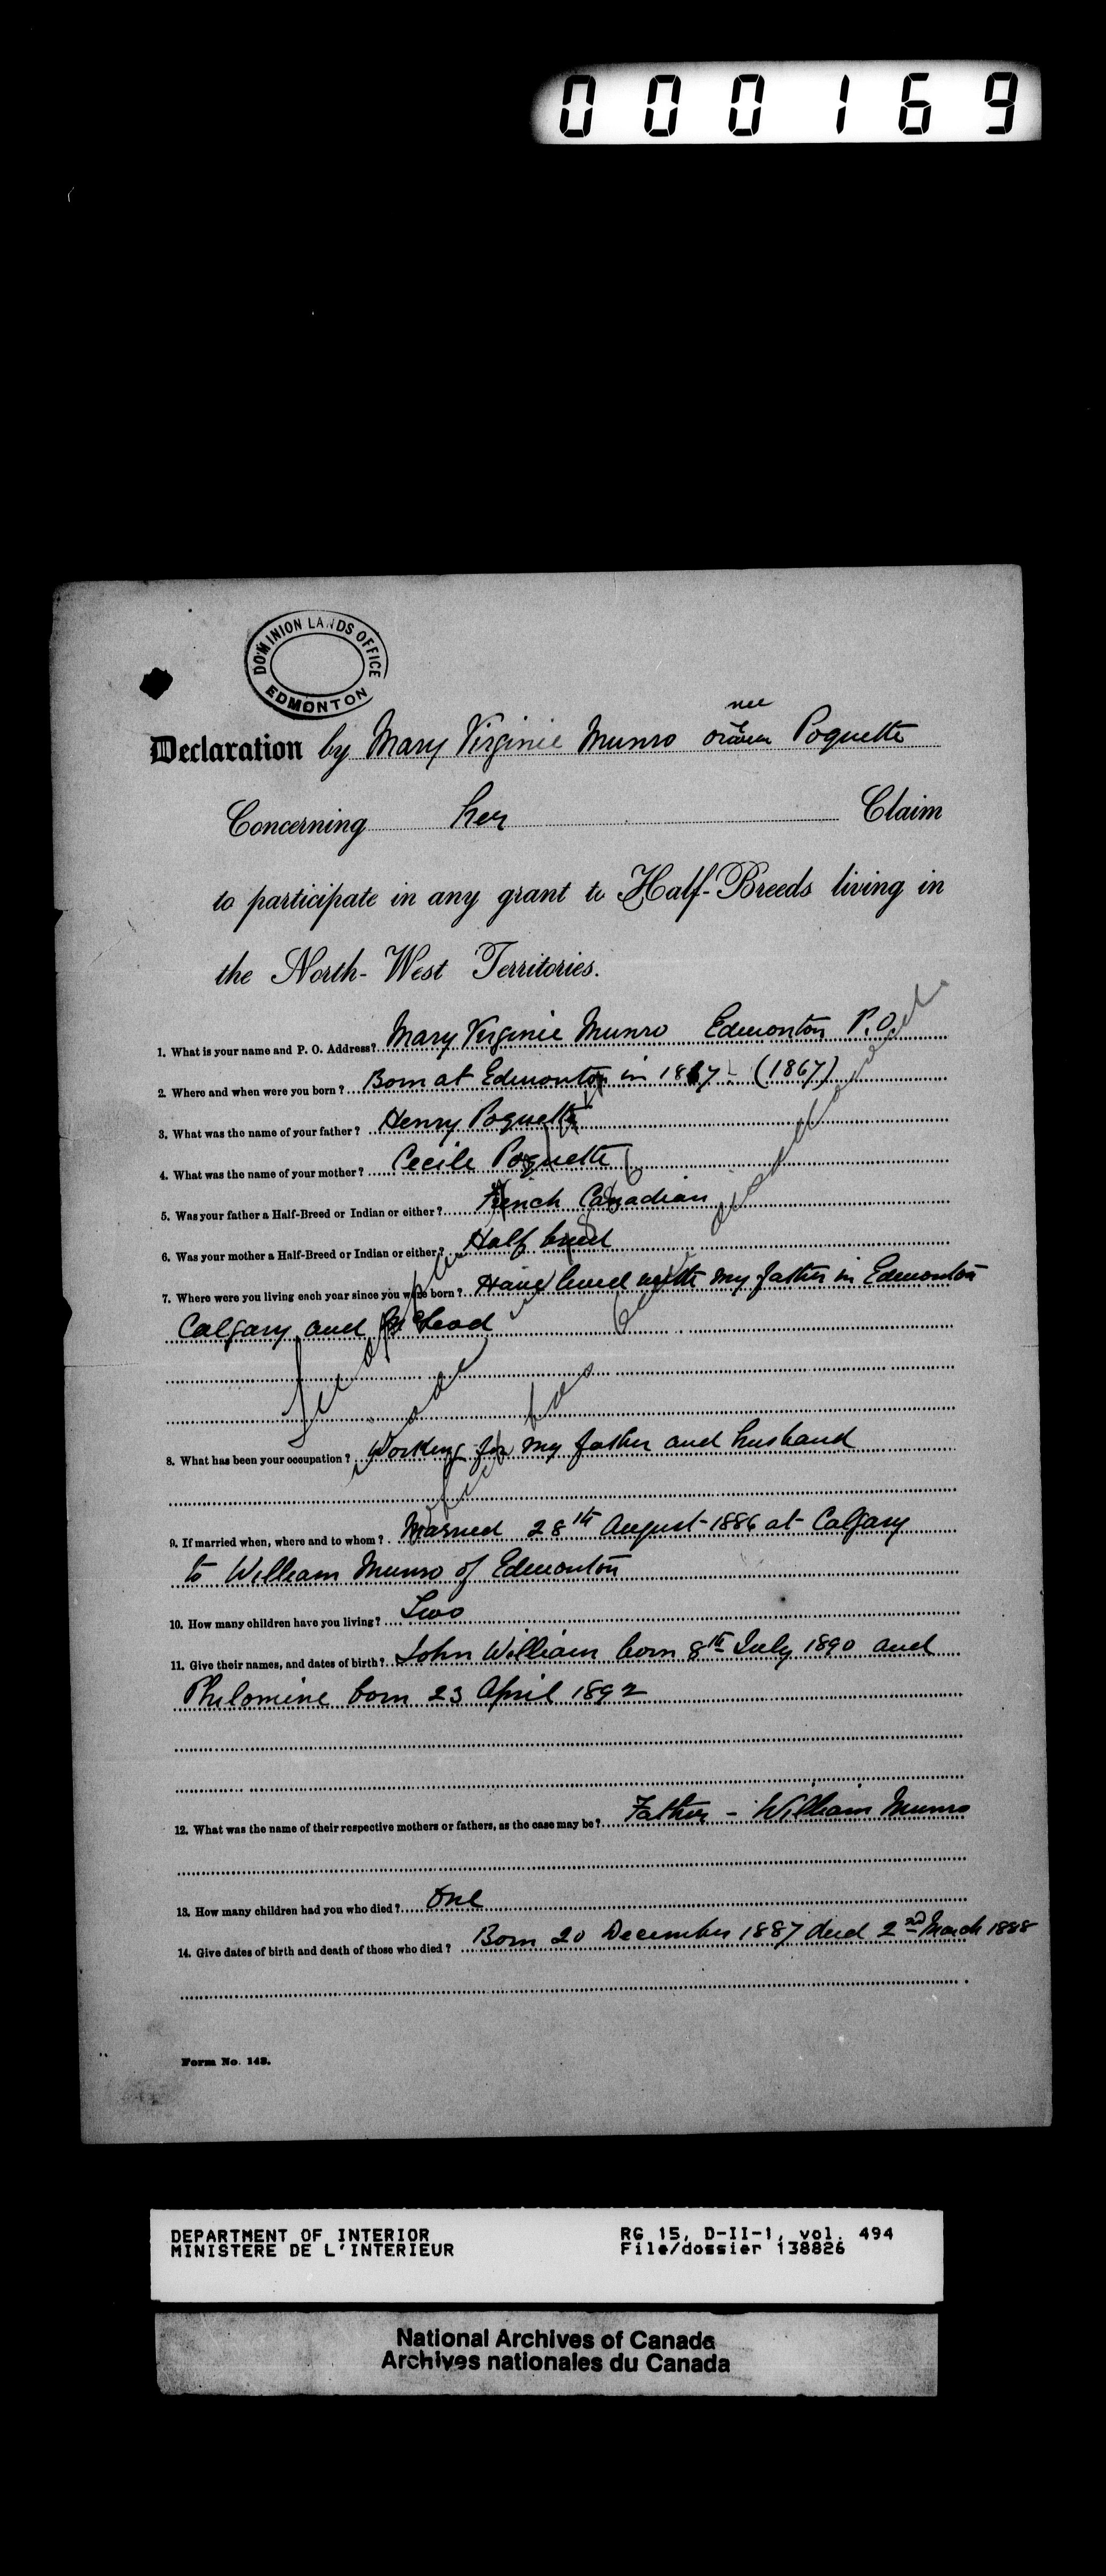 000169
DOMINION LANDS OFFICE
EDMONTON
nee
Declaration by Mary Virginie Munro Poquette
Concerning her Claim
to participate in any grant to Half-Breeds living in
the North-West Territories.
1. What is your name and P. O. Address? Mary Virginie Munro Edmonton P.O.
2. Where and when were you born? Born at Edmonton in 1867 (1867)
3. What was the name of your father? Henry Poquette
4. What was the name of your mother? Cecile Poquette
5. Was your father a Half-Breed or Indian or either? French Canadian
6. Was your mother a Half-Breed or Indian or either? Half breed
7. Where were you living each year since you were born? Have lived with my father in Edmonton
Calgary and McLeod
8. What has been your occupation? Working for my father and husband
9. If married when, where and to whom? Married 28th August 1886 at Calgary
to William Munro of Edmonton
10. How many children have you living? Two
11. Give their names, and dates of birth? John William born 8th July 1890 and
Philomine born 23 April 1892
12. What was the name of their respective mothers or fathers, as the case may be? Father - William Munro
13. How many children had you who died? One
14. Give dates of birth and death of those who died? Born 20 December 1887 died 2nd March 1888
Form No. 148.
DEPARTMENT OF INTERIOR RG 15, D-II-1, vol. 494
MINISTERE DE L'INTERIEUR File/dossier 138826
National Archives of Canada
Archives nationales du Canada